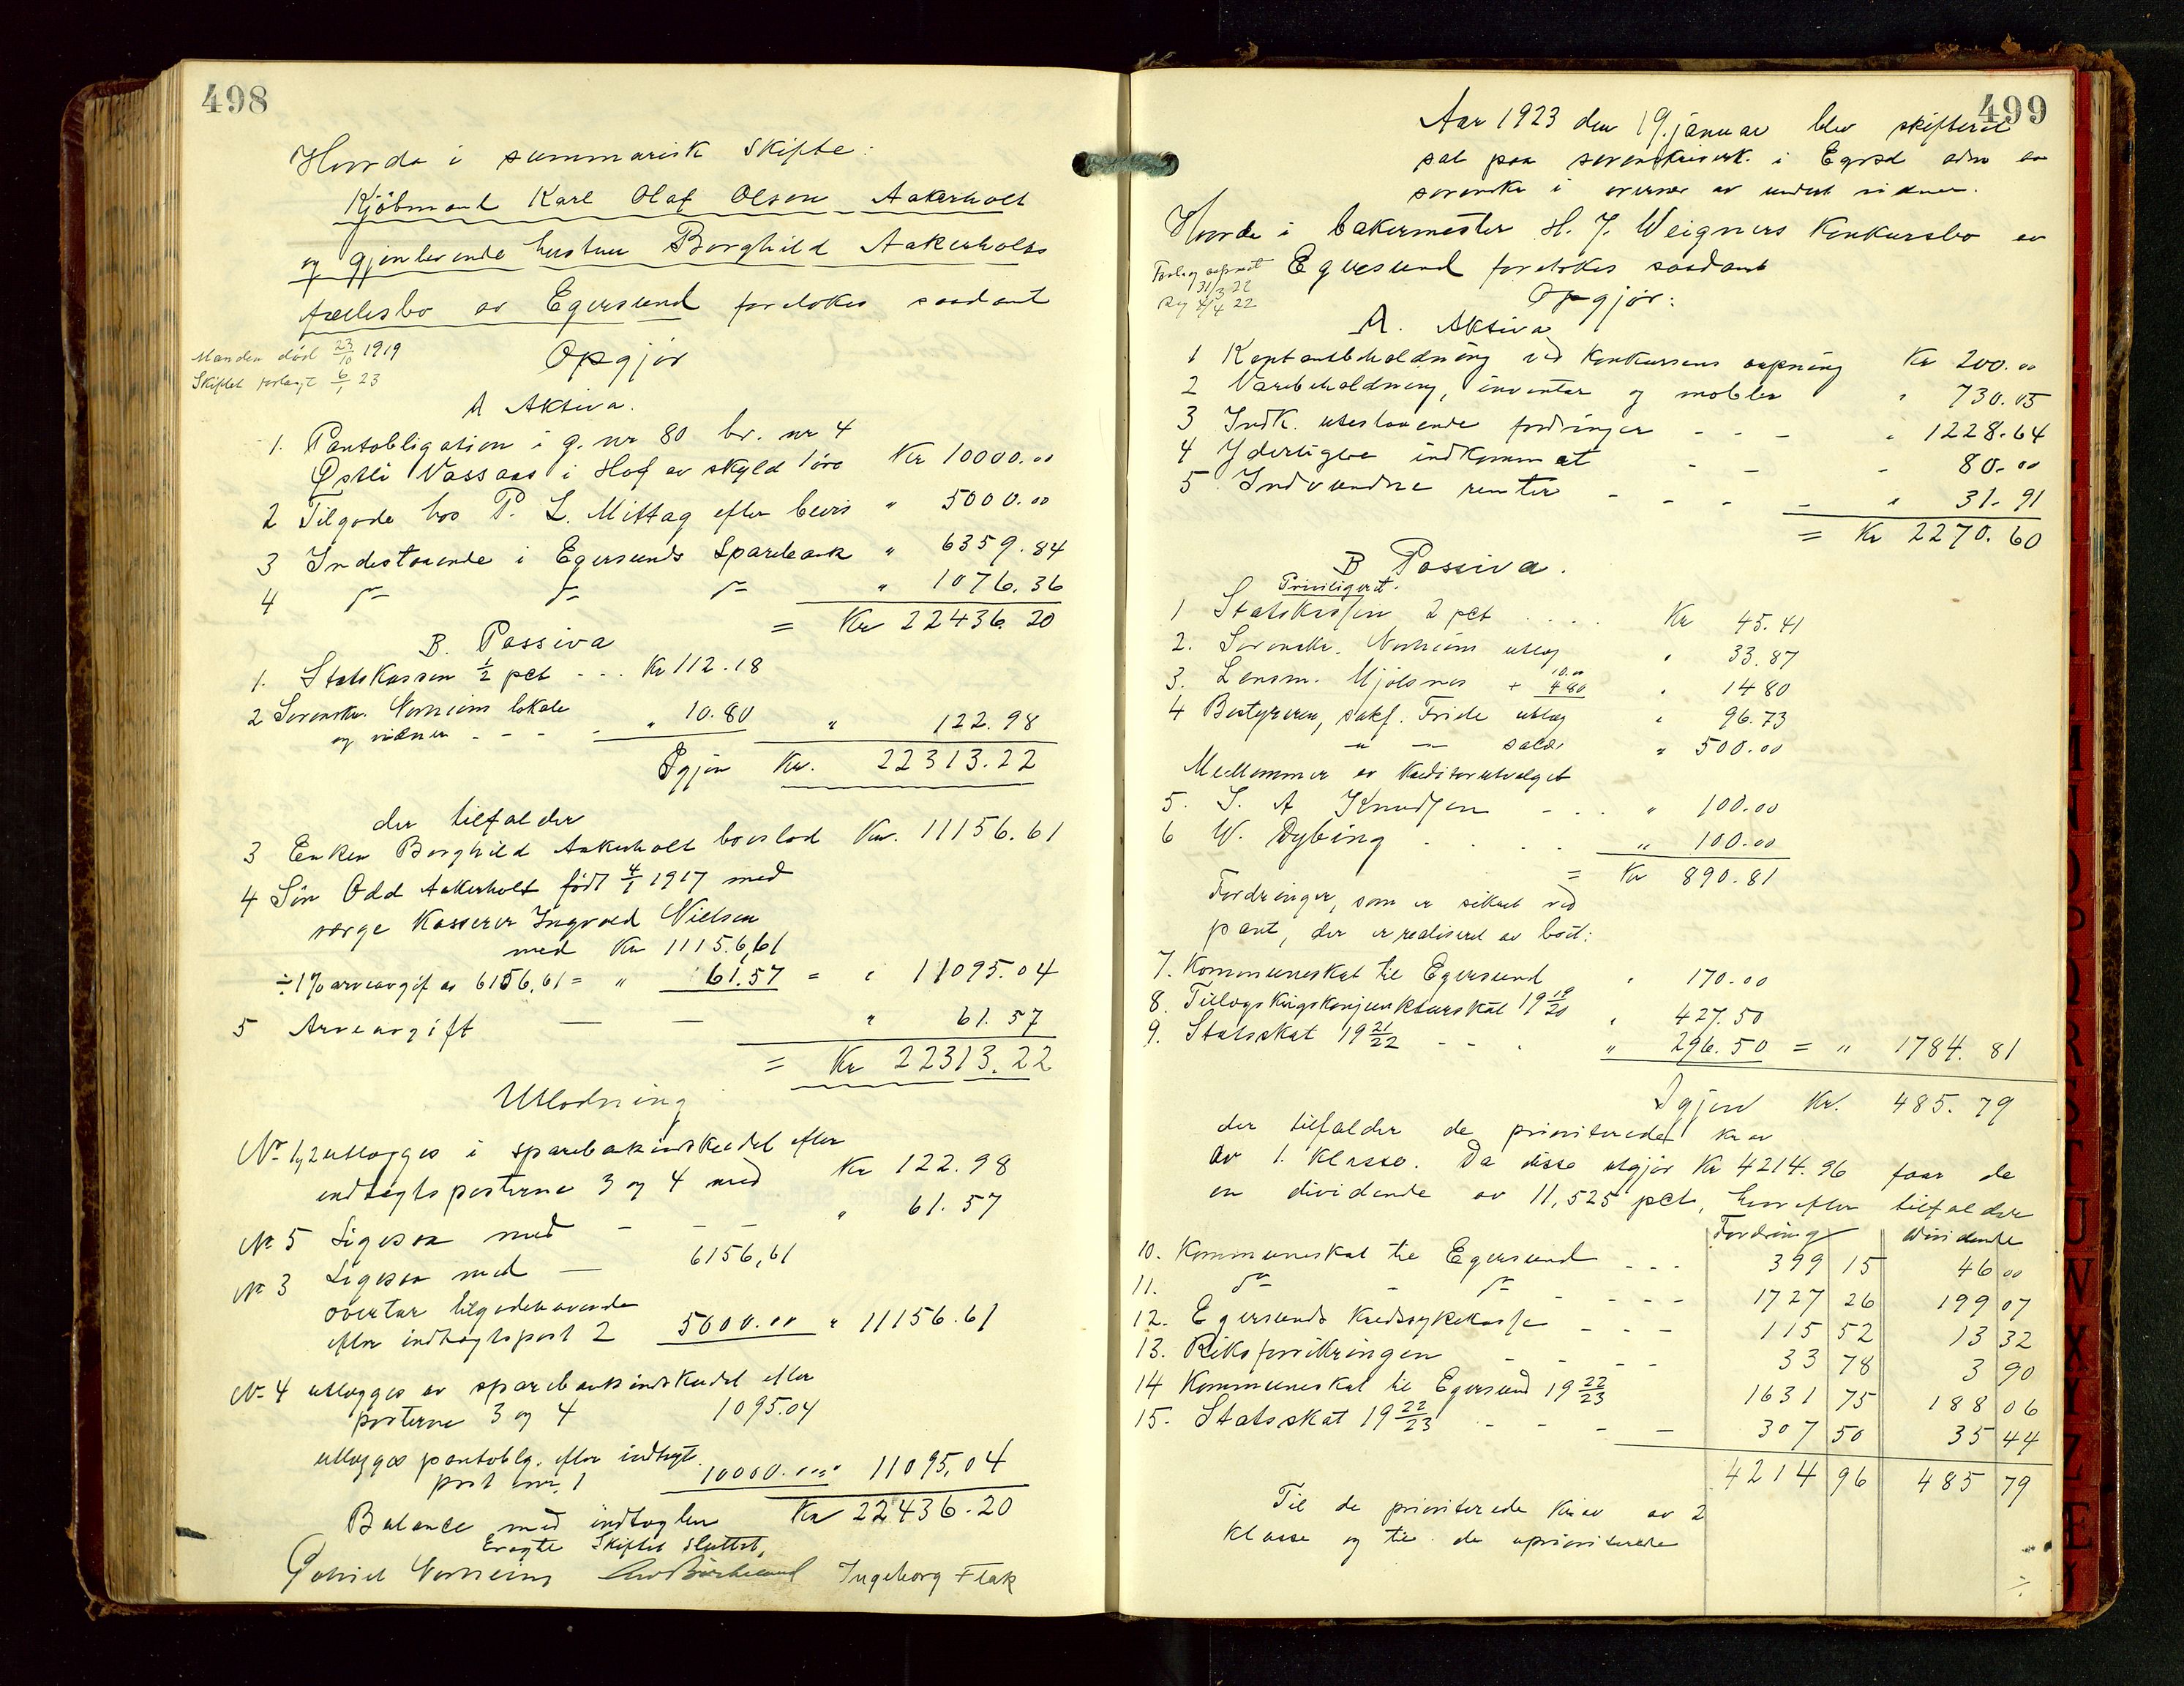 498
Hvorda i summarisk Skifte:
Kjöbmand Karl Olaf Olsen Aakerholt
og gjenlevende hustru Borghild Aakerholts
fællesbo av Egersund foretokes saadant
Manden död 23/10 1919
Skiftet forlangt 6/1 23
Opgjör
A Aktiva.
1. Pantobligation i g. nr 80 br. nr 4
Østli Vassaas i Hof av skyld 1 öre Kr 10000.00
2 Tilgode hos P. L. Mittag efter bevis " 5000.00
3 Indestaaende i Egersunds Sparebank " 6359.84
4 " 1076.36
= Kr 22436.20
B. Passiva
1. Statskassen 1/2 pct - .. Kr 112.18
2 Sorenskr. Norheims lokale
og vidner - - - - " 10.80 " 122.98
Igjen Kr. 22313.22
der tilfalder
3 Enken Borghild Aakerholt boeslod Kr. 11156.61
4 Sön Odd Aakerholt födt 4/1 1917 med
verge Kasserer Ingvald Nielsen
med Kr 11156,61
÷ 1% arveavgift av 6156,61 = " 61.57 = " 11095.04
5 Arveavgift — — " 61.57
= Kr 22313.22
Utlodning
No 1,2 utlægges i sparebankindskudet efter
indtægtsposterne 3 og 4 med Kr 122.98
No 5 Ligesaa med - - - " 61.57
No 3 Ligesaa med — 6156,61
overtar tilgodehavende
efter indtægtspost 2 5000.00 " 11156.61
No 4 utlægges av sparebankindskudet efter
posterne 3 og 4 1095.04
utlægges pantoblg. efter indtægt
post nr. 1 10000.00 " 11095,04
Balance med indtægten Kr 22436.20
Eragte Skiftet sluttet,
Gabriel Norheim Ingeborg Flak
499
Aar 1923 den 19. januar blev skifteret
sat paa sorenskriverk. i Egrsd adm av
sorenskr i overvær av undert vidner.
Hvorda i bakermester H. J. Weigners Konkursbo av
Egersund foretokes saadant
31/3 22
4/4 22
Opgjör:
A. Aktiva
1 Kontantbeholdning ved Konkursens aapning Kr 200.00
2 Varebeholdning, inventar og möbler " 730.05
3 Indk. utestaaende fordringer - - - " 1228.64
4 Yderligere indkommet - - - 80.00
5 Indvundne renter - - - - " 31.91
= Kr 2270.60
B Passiva.
Priviligeret.
1 Statskassen 2 pct .... Kr 45.41
2. Sorenskr. Norheims utlæg " 33.87
3. Lensm. Mjölsnes + 10.00
4 80 " 14 80
4 Bestyreren, sakf. Feide utlæg " 96.73
" — salær " 500.00
Medlemmer av Kreditorutvalget
5. S. A Knudsen - .. " 100.00
6 W. Dybing . . . . " 100.00
= Kr 890.81
Fordringer, som er sikret ved
pant, der er realiseret av boet:
7. Kommuneskat til Egersund " 170.00
8. Tillægskrigskonjunkturskat 19 19/20 " 427.50
9. Statsskat 19 21/22 - - . " 296.50 = " 1784.81
Igjen Kr. 485.79
der tilfalder de prioriterede krav
av 1. Klasse. Da disse utgjör Kr 4214.96 faar de
en dividende av 11,525 pct, hvorefter tilfalder
Fordring Dividende
10. Kommuneskat til Egersund - - - 399 15 46 00
11. - - - - - 1727 26 199 07
12. Egersunds Kredssykekasse - - - 115 52 13 32
13. Riksforsikringen - - - - 33 78 3 90
14 Kommuneskat til Egersund 19 22/23 1631 75 188 06
15. Statsskat 19 22/23 - - - - 307 50 35 44
4214 96 485 79
Til de prioriterede krav av 2
klasse og til de uprioriterede
÷